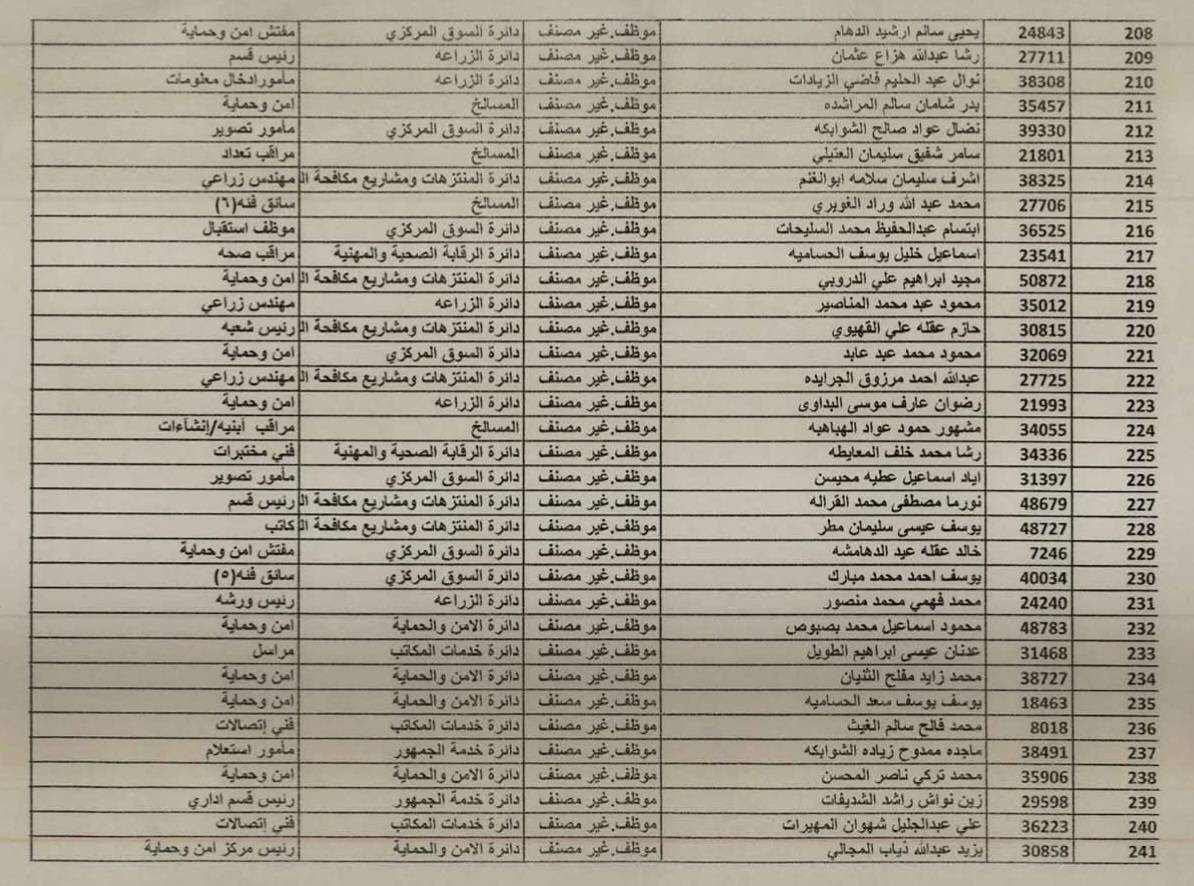 208 24843 يحيى سالم ارشيد الدهام موظف.غير مصنف دائرة السوق المركزي مفتش امن وحماية
209 27711 رشا عبدالله هزاع عثمان موظف.غير مصنف دائرة الزراعه رئيس قسم
210 38308 نوال عبد الحليم فاضي الزيادات موظف.غير مصنف دائرة الزراعه مأمورادخال معلومات
211 35457 بدر شامان سالم المراشده موظف.غير مصنف المسالخ امن وحماية
212 39330 نضال عواد صالح الشوابكه موظف.غير مصنف دائرة السوق المركزي مأمور تصوير
213 21801 سامر شفيق سليمان العتيلي موظف.غير مصنف المسالخ مراقب تعداد
214 38325 اشرف سليمان سلامه ابوالغنم موظف.غير مصنف دائرة المنتزهات ومشاريع مكافحة ال مهندس زراعي
215 27706 محمد عبد الله وراد الغويري موظف.غير مصنف المسالخ سائق فئه(٦)
216 36525 ابتسام عبدالحفيظ محمد السليحات موظف.غير مصنف دائرة السوق المركزي موظف استقبال
217 23541 اسماعيل خليل يوسف الحساميه موظف.غير مصنف دائرة الرقابة الصحية والمهنية مراقب صحه
218 50872 مجيد ابراهيم علي الدروبي موظف.غير مصنف دائرة المنتزهات ومشاريع مكافحة ال امن وحماية
219 35012 محمود عبد محمد المناصير موظف.غير مصنف دائرة الزراعه مهندس زراعي
220 30815 حازم عقله علي القهيوي موظف.غير مصنف دائرة المنتزهات ومشاريع مكافحة ال رئيس شعبه
221 32069 محمود محمد عبد عابد موظف.غير مصنف دائرة السوق المركزي امن وحماية
222 27725 عبدالله احمد مرزوق الجرايده موظف.غير مصنف دائرة المنتزهات ومشاريع مكافحة ال مهندس زراعي
223 21993 رضوان عارف موسى البداوى موظف.غير مصنف دائرة الزراعه امن وحماية
224 34055 مشهور حمود عواد الهباهبه موظف.غير مصنف المسالخ مراقب أبنيه/إنشآءات
225 34336 رشا محمد خلف المعايطه موظف.غير مصنف دائرة الرقابة الصحية والمهنية فني مختبرات
226 31397 اياد اسماعيل عطيه محيسن موظف.غير مصنف دائرة السوق المركزي مأمور تصوير
227 48679 نورما مصطفى محمد القراله موظف.غير مصنف دائرة المنتزهات ومشاريع مكافحة ال رئيس قسم
228 48727 يوسف عيسى سليمان مطر موظف.غير مصنف دائرة المنتزهات ومشاريع مكافحة ال كاتب
229 7246 خالد عقله عيد الدهامشه موظف.غير مصنف دائرة السوق المركزي مفتش امن وحماية
230 40034 يوسف احمد محمد مبارك موظف.غير مصنف دائرة السوق المركزي سائق فئه(٥)
231 24240 محمد فهمي محمد منصور موظف.غير مصنف دائرة الزراعه رئيس ورشه
232 48783 محمود اسماعيل محمد بصبوص موظف.غير مصنف دائرة الامن والحماية امن وحماية
233 31468 عدنان عيسى ابراهيم الطويل موظف.غير مصنف دائرة خدمات المكاتب مراسل
234 38727 محمد زايد مفلح الثنيان موظف.غير مصنف دائرة الامن والحماية امن وحماية
235 18463 يوسف يوسف سعد الحساميه موظف.غير مصنف دائرة الامن والحماية امن وحماية
236 8018 محمد فالح سالم الغيث موظف.غير مصنف دائرة خدمات المكاتب فني إتصالات
237 38491 ماجده ممدوح زياده الشوابكه موظف.غير مصنف دائرة خدمة الجمهور مأمور استعلام
238 35906 محمد تركي ناصر المحسن موظف.غير مصنف دائرة الامن والحماية امن وحماية
239 29598 زين نواش راشد الشديفات موظف.غير مصنف دائرة خدمة الجمهور رئيس قسم اداري
240 36223 علي عبدالجليل شهوان المهيرات موظف.غير مصنف دائرة خدمات المكاتب فني إتصالات
241 30858 يزيد عبدالله ذياب المجالي موظف.غير مصنف دائرة الامن والحماية رئيس مركز امن وحماية